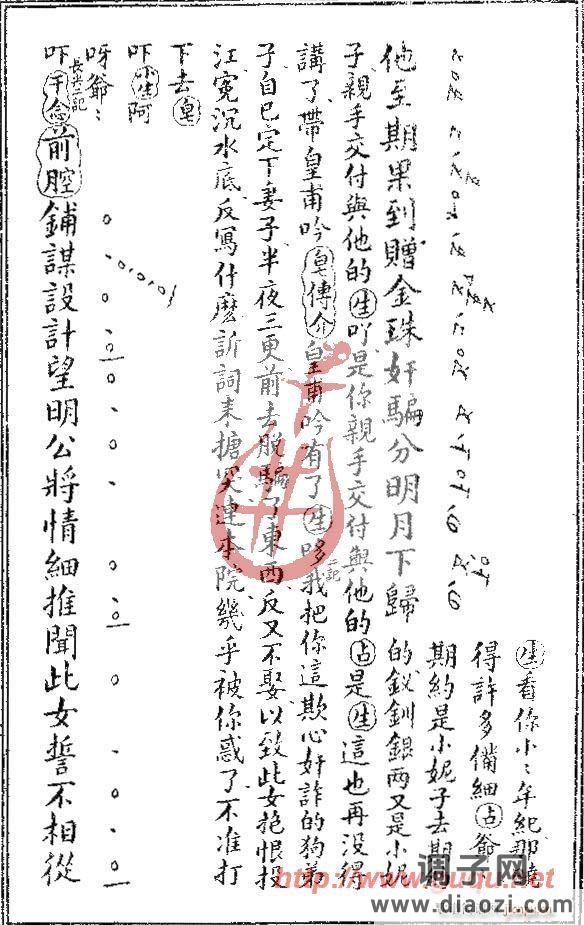 他至期果到贈金珠奸騙分明月下歸
生看你小〻年紀那曉
得許多備細占爺
期約是小妮子去期
的釵釧銀兩又是小妮
子親手交付與他的生吖是你親手交付與他的占是生這也再沒得
講了帶皇甫吟皂傳介皇甫吟有了生哆我把你這欺心奸詐的狗弟
子自已定下妻子半夜三更前去脫騙了東西反又不娶以致此女抱恨投
江冤沉水底反寫什麽訴詞來搪突連本院幾乎被你惑了不准打
下去皂
吓小生阿
呀爺〻
吓干念前腔鋪謀設計望明公將情細推聞此女誓不相從
http://www.guqu.net
调子网
www.diaozi.com